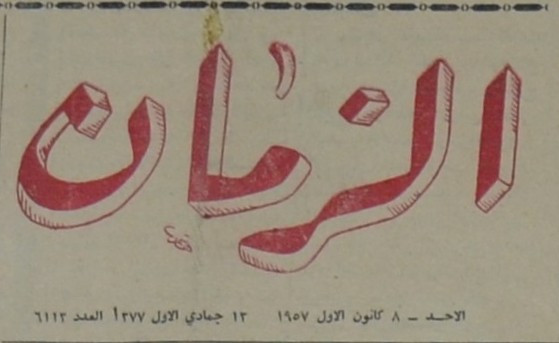 الزمان
الاحد - ٨ كانون الاول ١٩٥٧ ١٣ جمادي الاول ١٣٧٧ العدد ٦١١٢